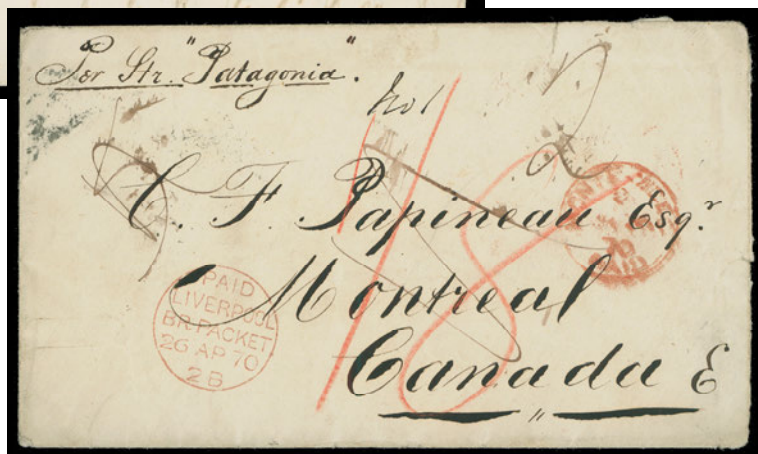 Per Str. "Patagonia".
No 1
2
1/8
C. F. Papineau Esq.r
Montreal
Canada E
PAID
LIVERPOOL
BR. PACKET
26 AP 70
2 B
PAID